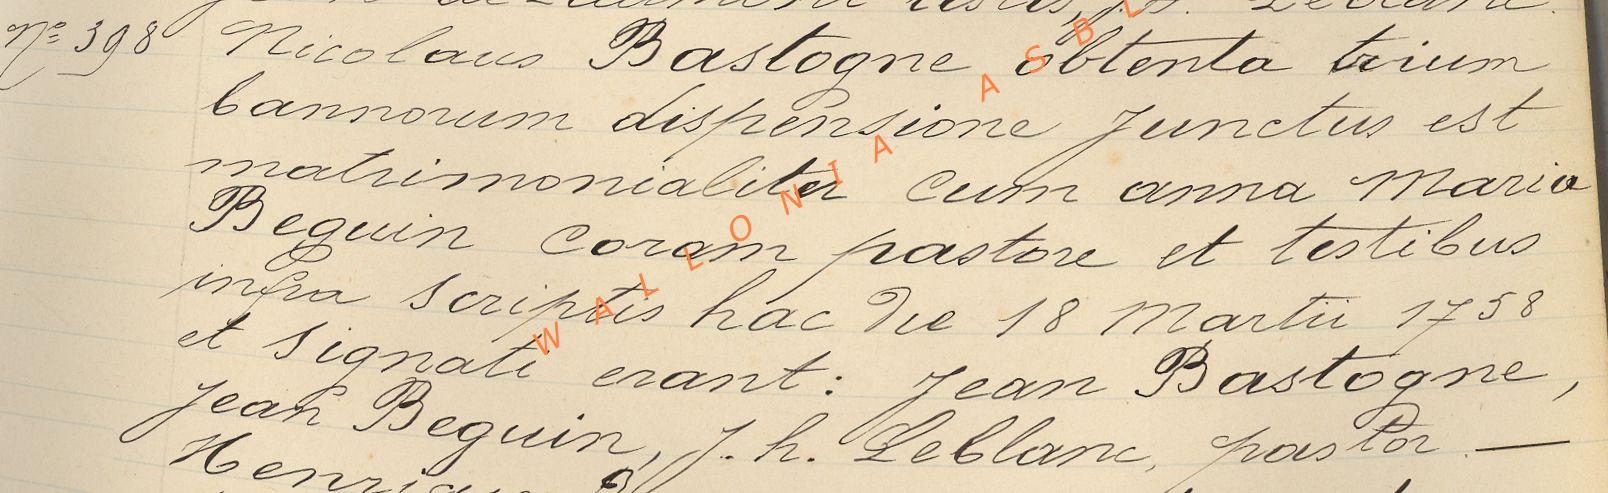 testis, J. h. Leblanc.
Nº 398 Nicolaus Bastogne obtenta trium
bannorum dispensione Junctus est
matrimonialiter cum anna Maria
Beguin coram pastore et testibus
infra scriptis hac die 18 Martii 1758
et signati erant: Jean Bastogne,
Jean Beguin, J. h. Leblanc, pastor —
WALLONIA ASBL